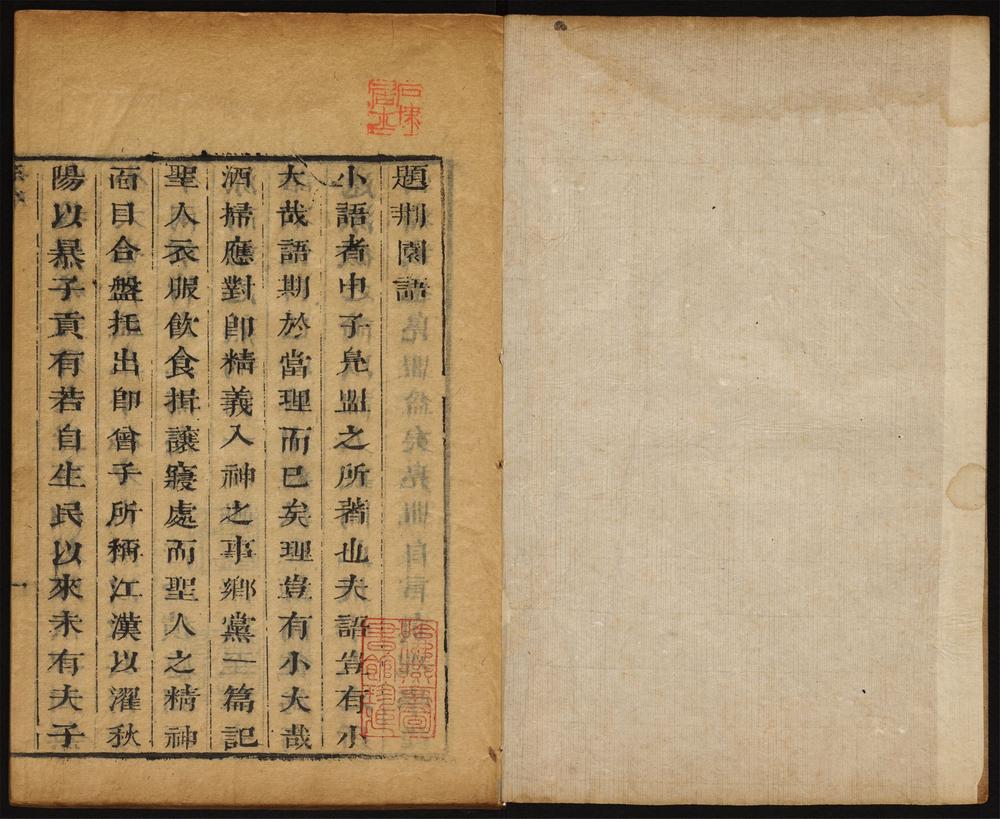 題荆園語
小語者申子鳧盟之所著也夫語豈有小
大哉語期於當理而已矣理豈有小大哉
洒掃應對卽精義入神之事鄉黨一篇記
聖人衣服飮食揖讓寢處而聖人之精神
面目合盤托出卽曾子所稱江漢以濯秋
陽以暴子貢有若自生民以來未有夫子